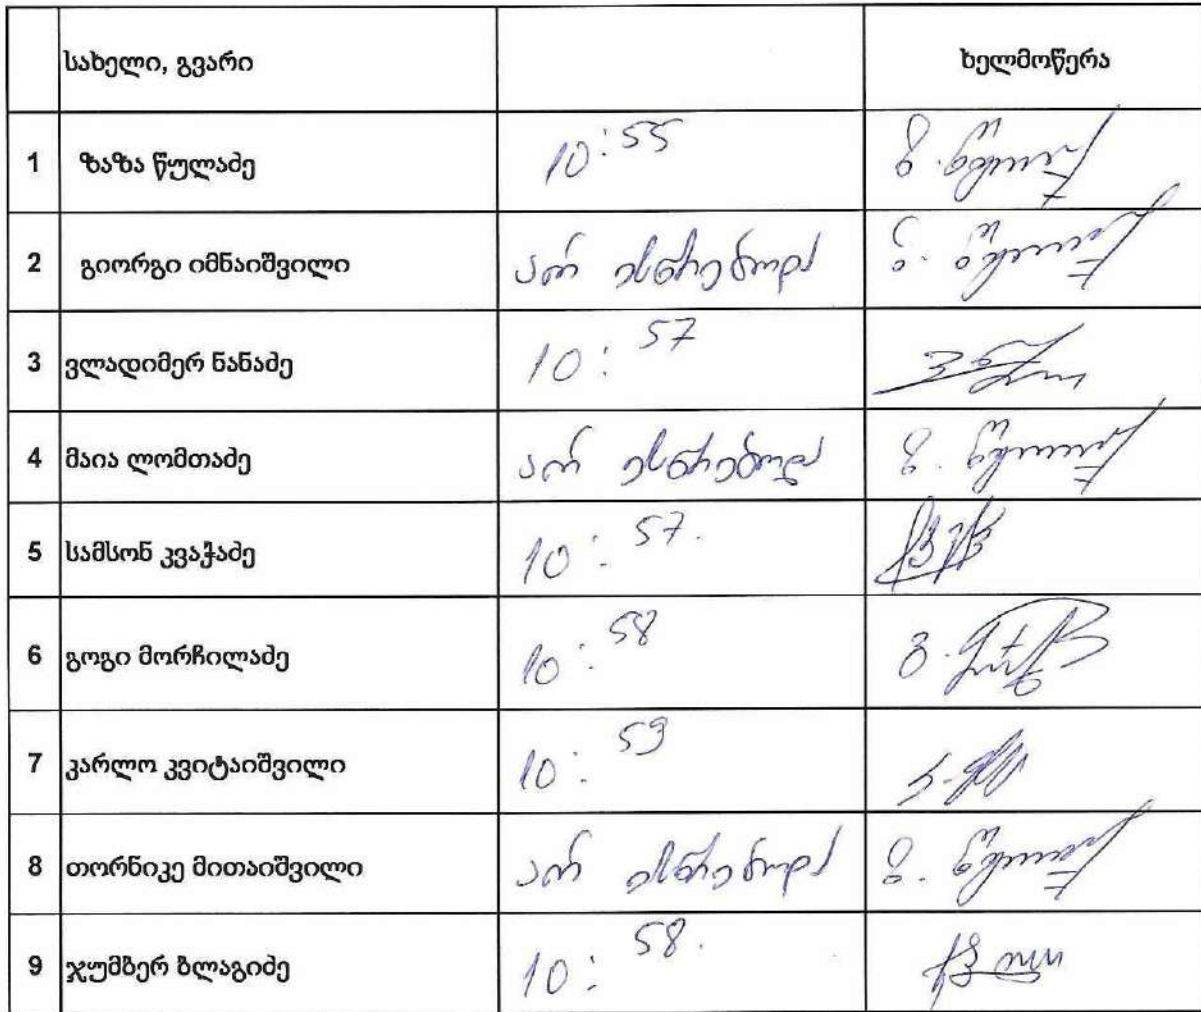 სახელი, გვარი ხელმოწერა
1 ზაზა წულაძე 10:55
2 გიორგი იმნაიშვილი არ ესწრებოდა
3 ვლადიმერ ნანაძე 10:57
4 მაია ლომთაძე არ ესწრებოდა
5 სამსონ კვაჭაძე 10:57.
6 გოგი მორჩილაძე 10:58
7 კარლო კვიტაიშვილი 10:59
8 თორნიკე მითაიშვილი არ ესწრებოდა
9 ჯუმბერ ბლაგიძე 10:58.